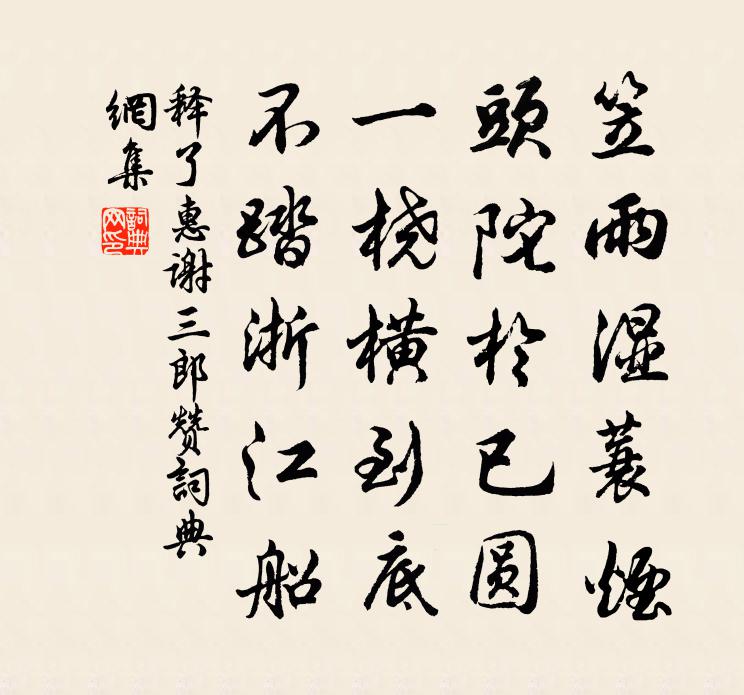 笠雨湿蓑煙
頭陀於已圆
一桡橫到底
不踏浙江船
释了惠谢三郎赞詞典
網集
詞典网印